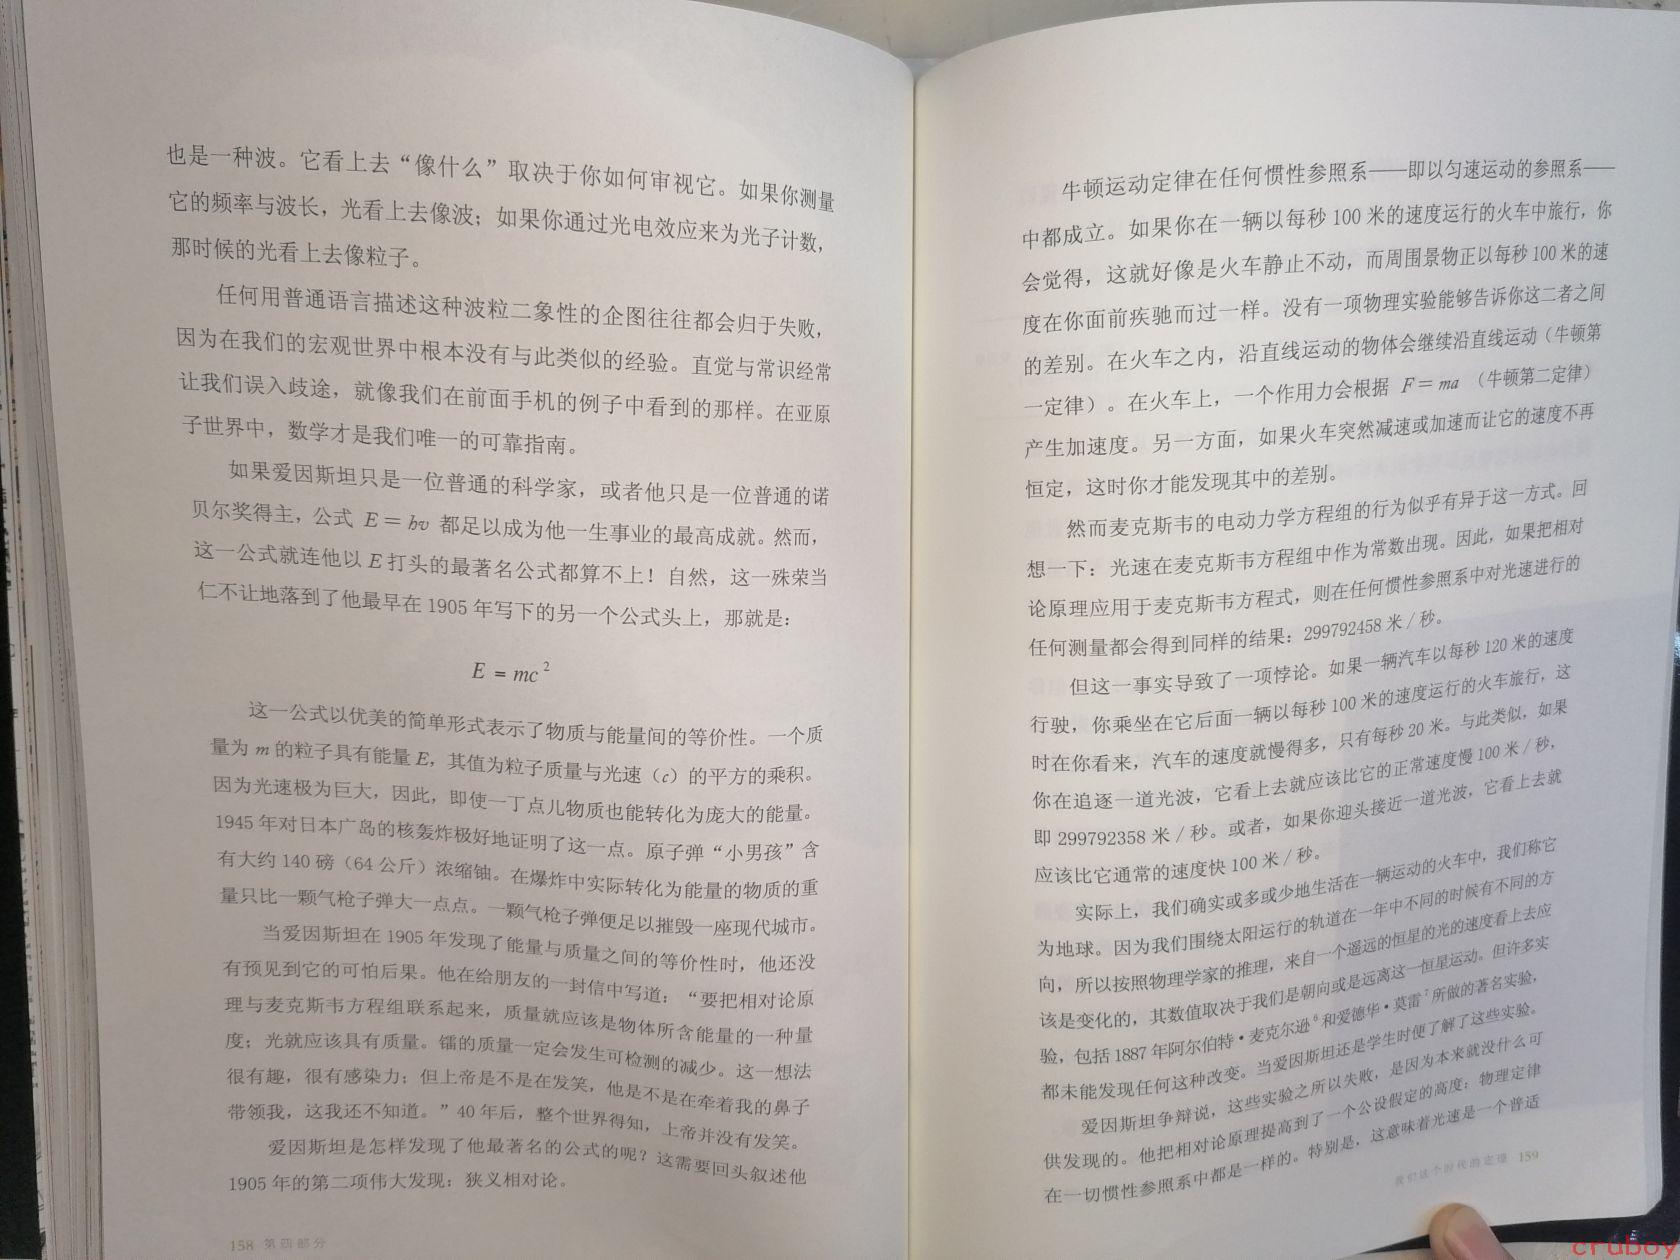 也是一种波。它看上去“像什么”取决于你如何审视它。如果你测量
它的频率与波长，光看上去像波；如果你通过光电效应来为光子计数，
那时候的光看上去像粒子。
任何用普通语言描述这种波粒二象性的企图往往都会归于失败，
因为在我们的宏观世界中根本没有与此类似的经验。直觉与常识经常
让我们误入歧途，就像我们在前面手机的例子中看到的那样。在亚原
子世界中，数学才是我们唯一的可靠指南。
如果爱因斯坦只是一位普通的科学家，或者他只是一位普通的诺
贝尔奖得主，公式 E = hv 都足以成为他一生事业的最高成就。然而，
这一公式就连他以 E 打头的最著名公式都算不上！自然，这一殊荣当
仁不让地落到了他最早在 1905 年写下的另一个公式头上，那就是：
E = mc²
这一公式以优美的简单形式表示了物质与能量间的等价性。一个质
量为 m 的粒子具有能量 E，其值为粒子质量与光速（c）的平方的乘积。
因为光速极为巨大，因此，即使一丁点儿物质也能转化为庞大的能量。
1945 年对日本广岛的核轰炸极好地证明了这一点。原子弹“小男孩”含
有大约 140 磅（64 公斤）浓缩铀。在爆炸中实际转化为能量的物质的重
量只比一颗气枪子弹大一点点。一颗气枪子弹便足以摧毁一座现代城市。
当爱因斯坦在 1905 年发现了能量与质量之间的等价性时，他还没
有预见到它的可怕后果。他在给朋友的一封信中写道：“要把相对论原
理与麦克斯韦方程组联系起来，质量就应该是物体所含能量的一种量
度；光就应该具有质量。镭的质量一定会发生可检测的减少。这一想法
很有趣，很有感染力；但上帝是不是在发笑，他是不是在牵着我的鼻子
带领我，这我还不知道。”40 年后，整个世界得知，上帝并没有发笑。
爱因斯坦是怎样发现了他最著名的公式的呢？这需要回头叙述他
1905 年的第二项伟大发现：狭义相对论。
158 第四部分
牛顿运动定律在任何惯性参照系——即以匀速运动的参照系——
中都成立。如果你在一辆以每秒 100 米的速度运行的火车中旅行，你
会觉得，这就好像是火车静止不动，而周围景物正以每秒 100 米的速
度在你面前疾驰而过一样。没有一项物理实验能够告诉你这二者之间
的差别。在火车之内，沿直线运动的物体会继续沿直线运动（牛顿第
一定律）。在火车上，一个作用力会根据 F = ma （牛顿第二定律）
产生加速度。另一方面，如果火车突然减速或加速而让它的速度不再
恒定，这时你才能发现其中的差别。
然而麦克斯韦的电动力学方程组的行为似乎有异于这一方式。回
想一下：光速在麦克斯韦方程组中作为常数出现。因此，如果把相对
论原理应用于麦克斯韦方程式，则在任何惯性参照系中对光速进行的
任何测量都会得到同样的结果：299792458 米 / 秒。
但这一事实导致了一项悖论。如果一辆汽车以每秒 120 米的速度
行驶，你乘坐在它后面一辆以每秒 100 米的速度运行的火车旅行，这
时在你看来，汽车的速度就慢得多，只有每秒 20 米。与此类似，如果
你在追逐一道光波，它看上去就应该比它的正常速度慢 100 米 / 秒，
即 299792358 米 / 秒。或者，如果你迎头接近一道光波，它看上去就
应该比它通常的速度快 100 米 / 秒。
实际上，我们确实或多或少地生活在一辆运动的火车中，我们称它
为地球。因为我们围绕太阳运行的轨道在一年中不同的时候有不同的方
向，所以按照物理学家的推理，来自一个遥远的恒星的光的速度看上去应
该是变化的，其数值取决于我们是朝向或是远离这一恒星运动。但许多实
验，包括 1887 年阿尔伯特·麦克尔逊⁶和爱德华·莫雷⁷所做的著名实验，
都未能发现任何这种改变。当爱因斯坦还是学生时便了解了这些实验。
爱因斯坦争辩说，这些实验之所以失败，是因为本来就没什么可
供发现的。他把相对论原理提高到了一个公设假定的高度：物理定律
在一切惯性参照系中都是一样的。特别是，这意味着光速是一个普适
我们这个时代的定律 159
cruboy